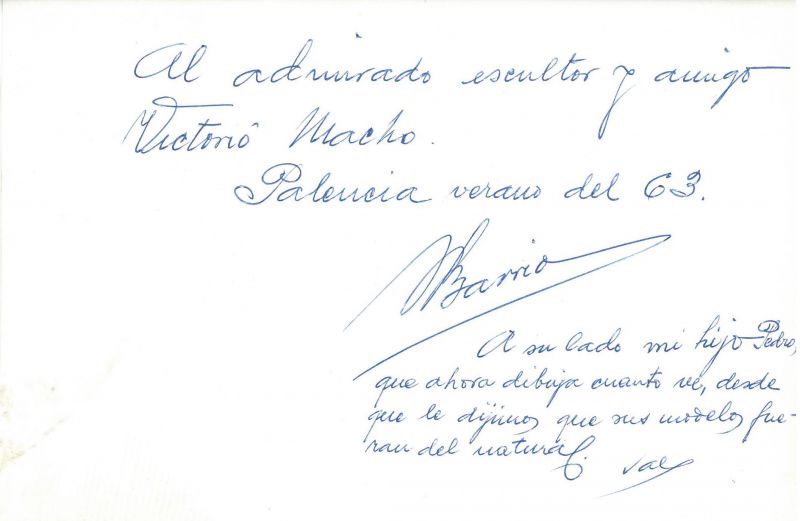 Al admirado escultor y amigo
Victorio Macho.
Palencia verano del 63.
Barrio
A su lado mi hijo Pedro,
que ahora dibuja cuanto ve, desde
que le dijimos que sus modelos fue-
ran del natural.